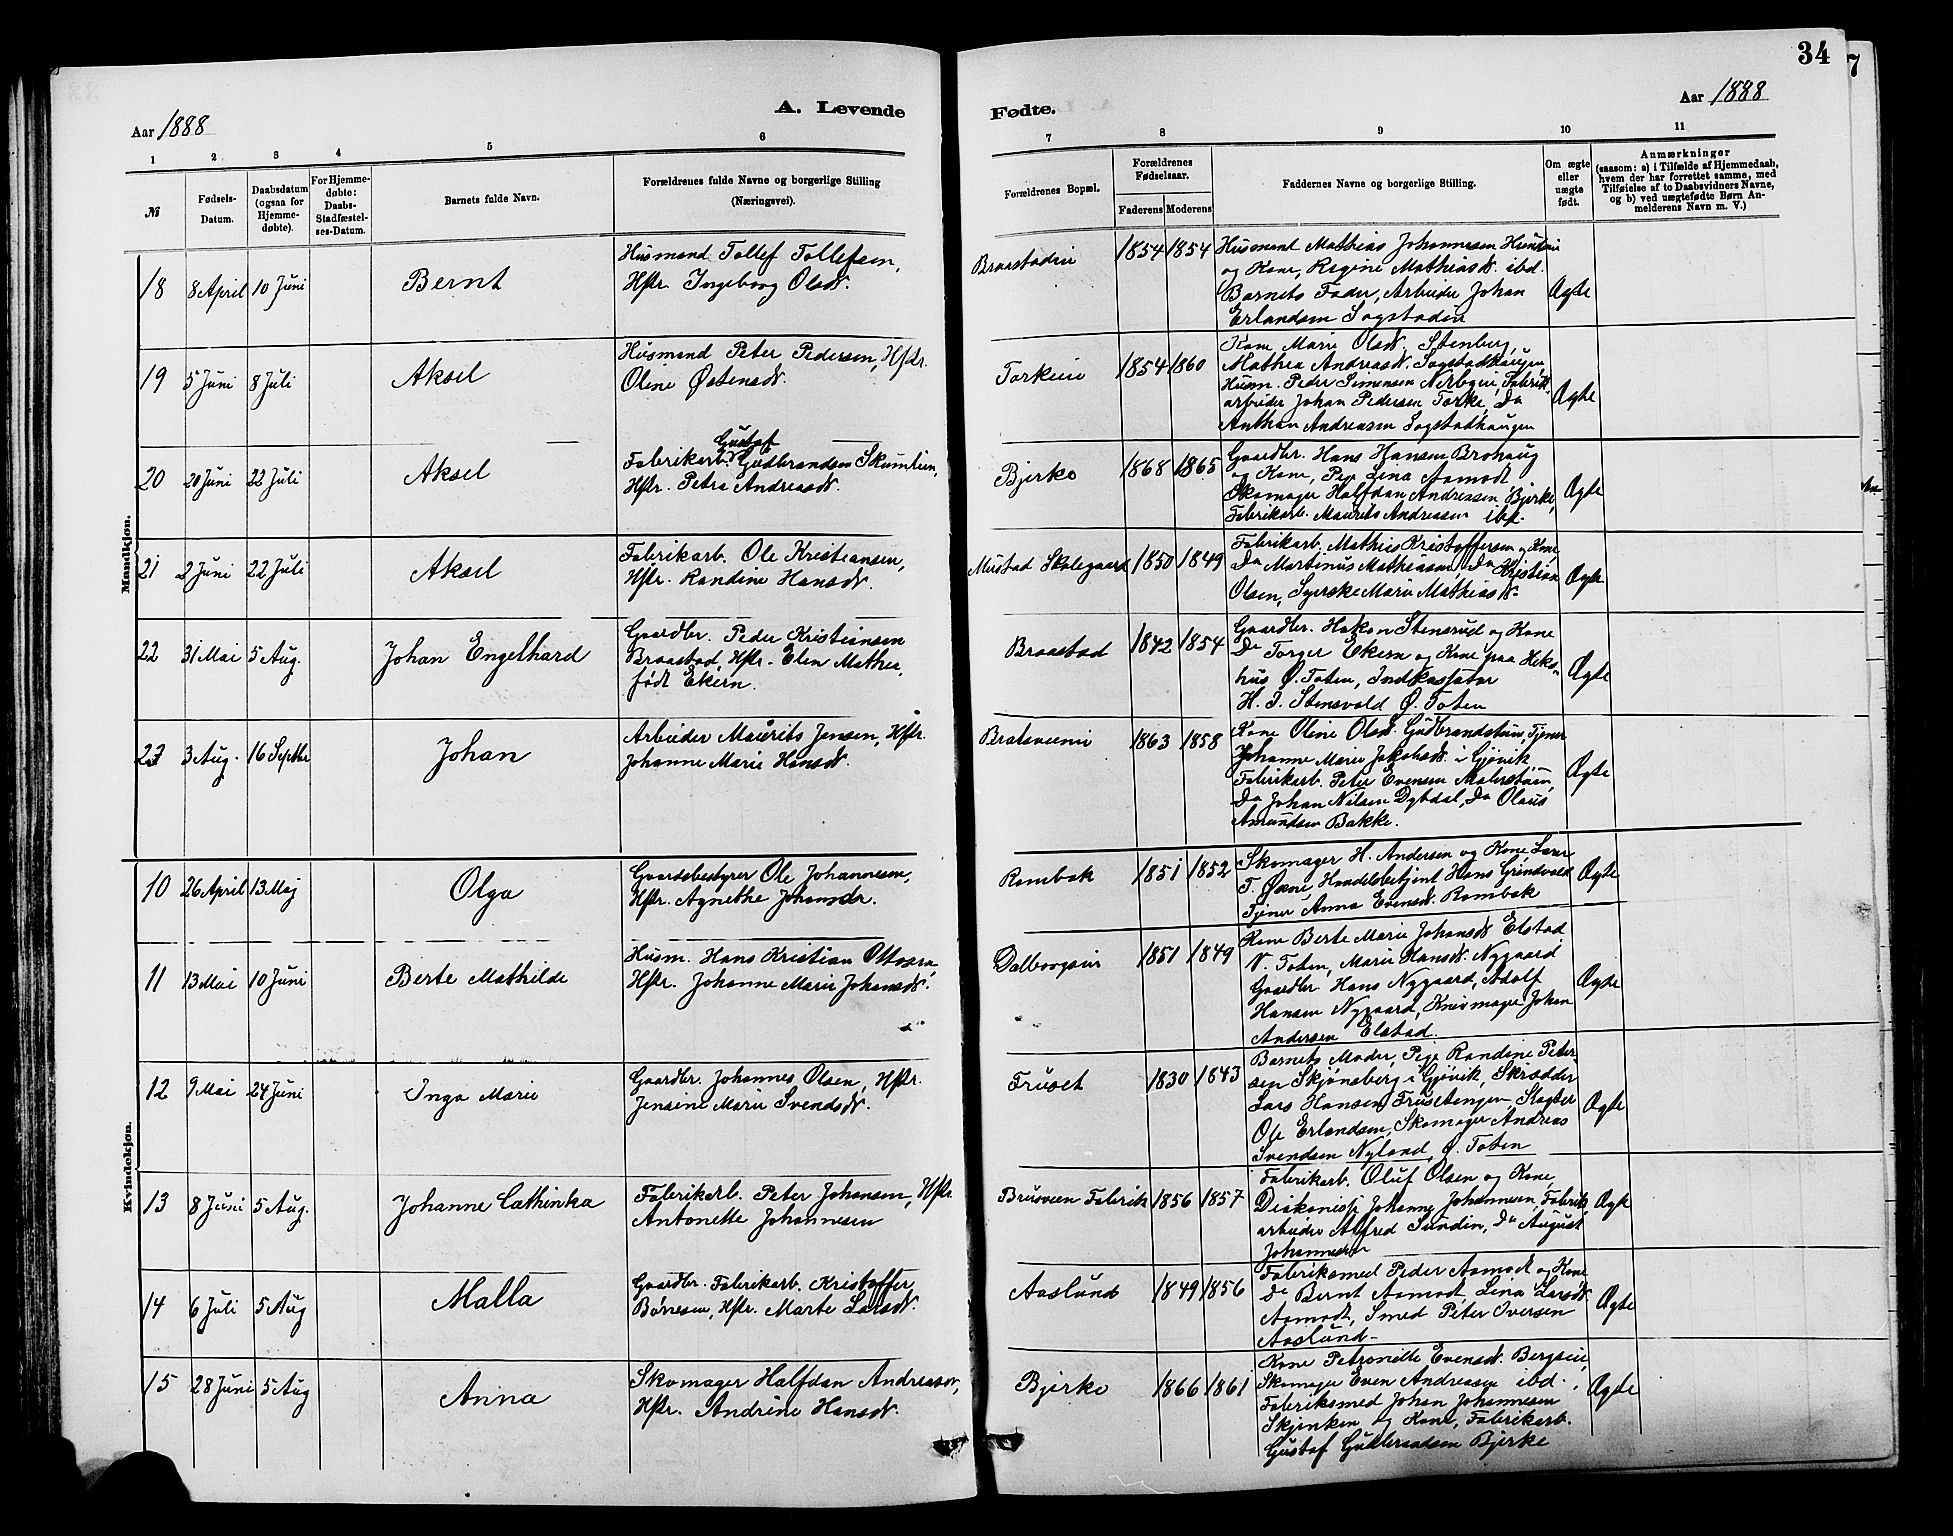 34
7
Aar 1888
A. Levende
Fødte.
Aar 1888
1 2 3 4 5 6
7 8 9 10 11
№
Fødsels-
Datum.
Daabsdatum
(ogsaa for
Hjemme-
døbte).
For Hjemme-
døbte:
Daabs-
Stadfæstel-
ses-Datum.
Barnets fulde Navn.
Forældrenes fulde Navne og borgerlige Stilling
(Næringsvei).
Forældrenes Bopæl.
Forældrenes
Fødselsaar.
Faderens Moderens
Faddernes Navne og borgerlige Stilling.
Om ægte
eller
uægte
født.
Anmærkninger
(saasom: a) i Tilfælde af Hjemmedaab,
hvem der har forrettet samme, med
Tilføielse af to Daabsvidners Navne,
og b) ved uægtefødte Børn An-
melderens Navn m. V.)
Mandkjøn.
18 8 April 10 Juni Bernt
Husmand Tollef Tollefsen,
Hstr. Ingeborg Olsdr.
Braastadeie 1854 1854
Husmand Mathias Johannesen
og Kone, Regine Mathiasdr. ibd.
Barnets Fader, Arbeider Johan
Erlandsen Sogstadeie
Ægte
19 5 Juni 8 Juli Aksel
Husmand Peter Pedersen, Hstr.
Oline Østensdr.
Torkeeie 1854 1860
Kone Marie Olsdr. Stenberg,
Mathea Andreasdr. Sogstadhaugen,
Husm. Peder Simensen Fabrik-
arbeider Johan Pedersen Torke, Do
Anthon Andreassen Sogstadhaugen
Ægte
20 20 Juni 22 Juli Aksel
Gustaf
Fabrikarb. Gudbrandsen Skumlien,
Hstr. Petra Andreasdr.
Bjerke 1868 1865
Gaardbr. Hans Hansen Brohaug
og Kone, Pige Lina Aamodt
Skomager Halfdan Andreassen Bjerke,
Fabrikarb. Maurits Andreassen ibd.
Ægte
21 2 Juni 22 Juli Aksel
Fabrikarb. Ole Kristiansen,
Hstr. Randine Hansdr.
Mustad Skolegaard 1850 1849
Fabrikarb. Mathias Kristoffersen og Kone,
Do Martinus Mathiassen, Do Kristian
Olsen, Syerske Marie Mathiasdr.
Ægte
22 31 Mai 5 Aug. Johan Engelhard
Gaardbr. Peder Kristiansen
Braastad, Hstr. Elen Mathea,
født Ekern.
Braastad 1842 1854
Gaardbr. Hakon Stensrud og Kone
Do Torger Ekern og Kone paa Heks-
hus Ø. Toten, Indkassator
H. J. Stensvold Ø. Toten
Ægte
23 3 Aug. 16 Septbr Johan
Arbeider Maurits Jensen, Hstr.
Johanne Marie Hansdr.
Bratsveenie 1863 1858
Kone Oline Olsd. Tjener
Johanne Marie Jakobsdr. i Gjøvik,
Fabrikarb. Peter Evensen
Do Johan Nilsen Dybdal, Do Olaus
Amundsen Bakke.
Ægte
Kvindekjøn.
10 26 April 13 Maj Olga
Gaardsbestyrer Ole Johannesen,
Hstr. Agnethe Johansdr.
Rambæk 1851 1852
Skomager H. Andersen og Kone, Lærer
T. Øxne, Handelsbetjent Hans Grindvold
Tjener Anna Evensdr. Rambæk
Ægte
11 13 Mai 10 Juni Berte Mathilde
Husm. Hans Kristian Ottosen,
Hstr. Johanne Marie Johansdr.
Dalborgseie 1851 1849
Kone Berte Marie Johansdr. Elstad
V. Toten, Marie Hansdr. Nygaard
Gaardbr. Hans Nygaard, Adolf
Hansen Nygaard, Knivmager Johan
Andersen Elstad.
Ægte
12 9 Mai 24 Juni Inga Marie
Gaardbr. Johannes Olsen, Hstr.
Jensine Marie Svendsdr.
Fruset 1830 1843
Barnets Moder, Pige Randine Peter-
sen Skjønsberg i Gjøvik, Skrædder
Lars Hansen Frusetengen, Slagter
Ole Erlandsen, Skomager Andreas
Svendsen Nyland, Ø. Toten
Ægte
13 8 Juni 5 Aug. Johanne Cathinka
Fabrikarb. Peter Johansen, Hstr
Antonette Johannesen
Brusveen Fabrik 1856 1857
Fabrikarb. Oluf Olsen og Kone,
Diakonisse Johanne Johannesen, Fabrik-
arbeider Alfred Sundin, Do August
Johannesen
Ægte
14 6 Juli 5 Aug Malla
Gaardbr. Fabrikarb. Kristoffer
Børresen, Hstr. Marte Larsdr.
Aaslund 1849 1856
Fabriksmed Peder Aamodt og Kone
Do Bernt Aamodt, Lina Larsdr.
Aamodt, Smed Peter Iversen
Aaslund.
Ægte
15 28 Juni 5 Aug Anna
Skomager Halfdan Andreassen,
Hstr. Andrine Hansdr.
Bjerke 1866 1861
Kone Petronille Evensdr. Bergseie,
Skomager Even Andreassen ibd.,
Fabriksmed Johan Johannesen
Skjenken og Kone, Fabrikarb.
Gustaf Gudbrandsen Bjerke
Ægte